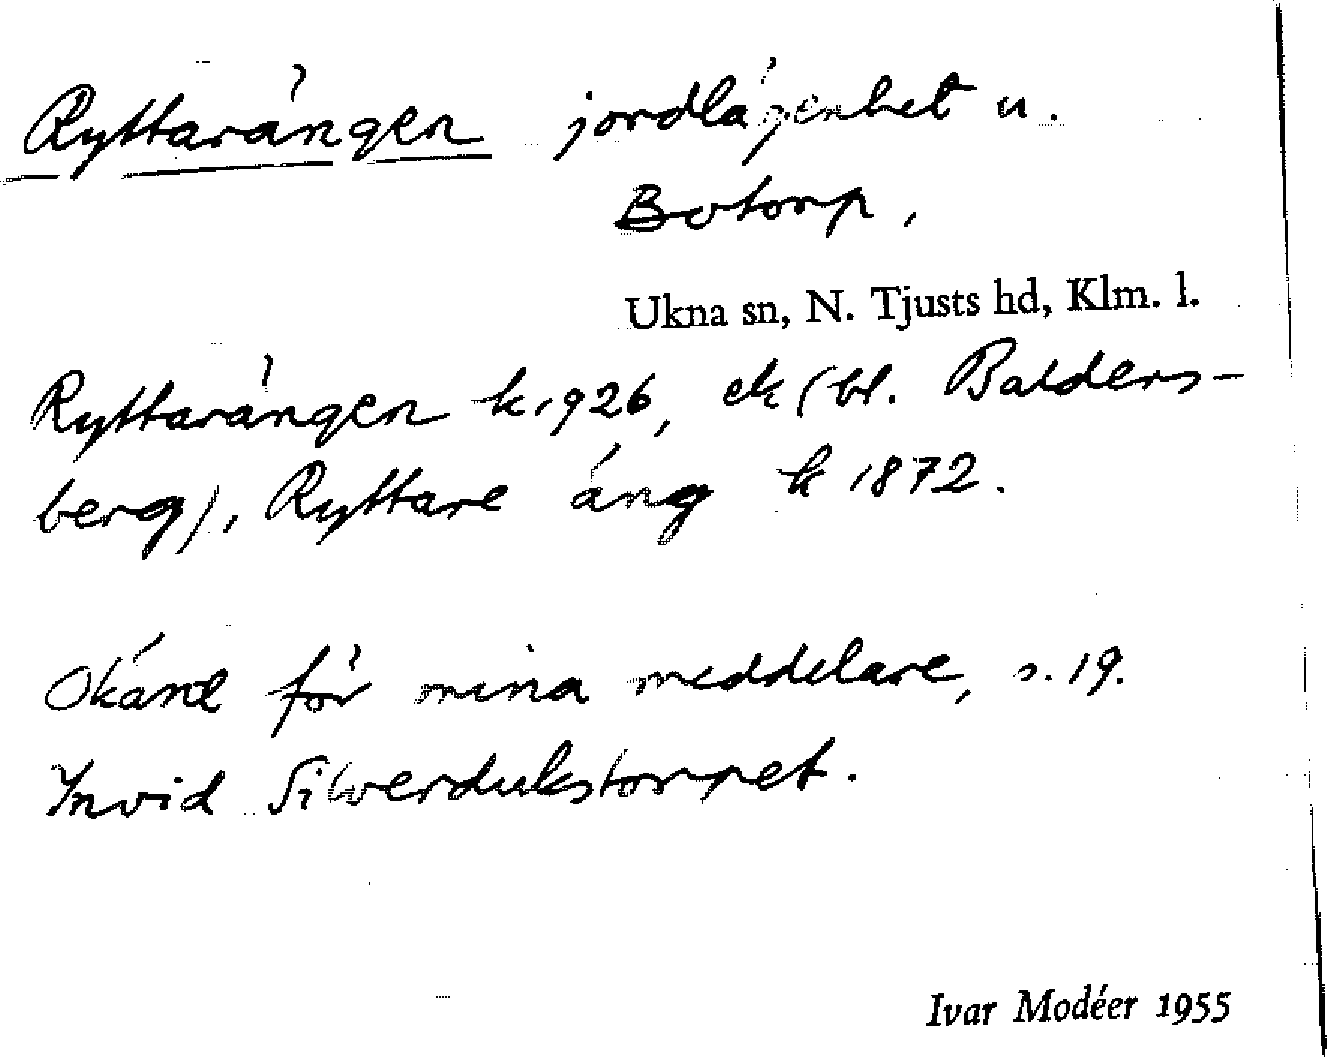 Ryttarängen jordlägenhet u.
Botorp,
Ukna sn, N. Tjusts hd, Klm. l.
Ryttarängen k 1926, ek (bl. Balders-
berg), Ryttare äng k 1872.
Okänd för mina meddelare, s. 19.
Invid Silverdukstorpet.
Ivar Modéer 1955